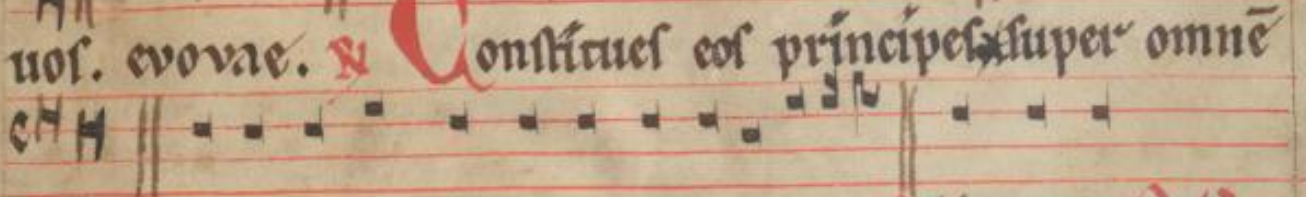 uos. evovae. Constitues eos principes super omnē